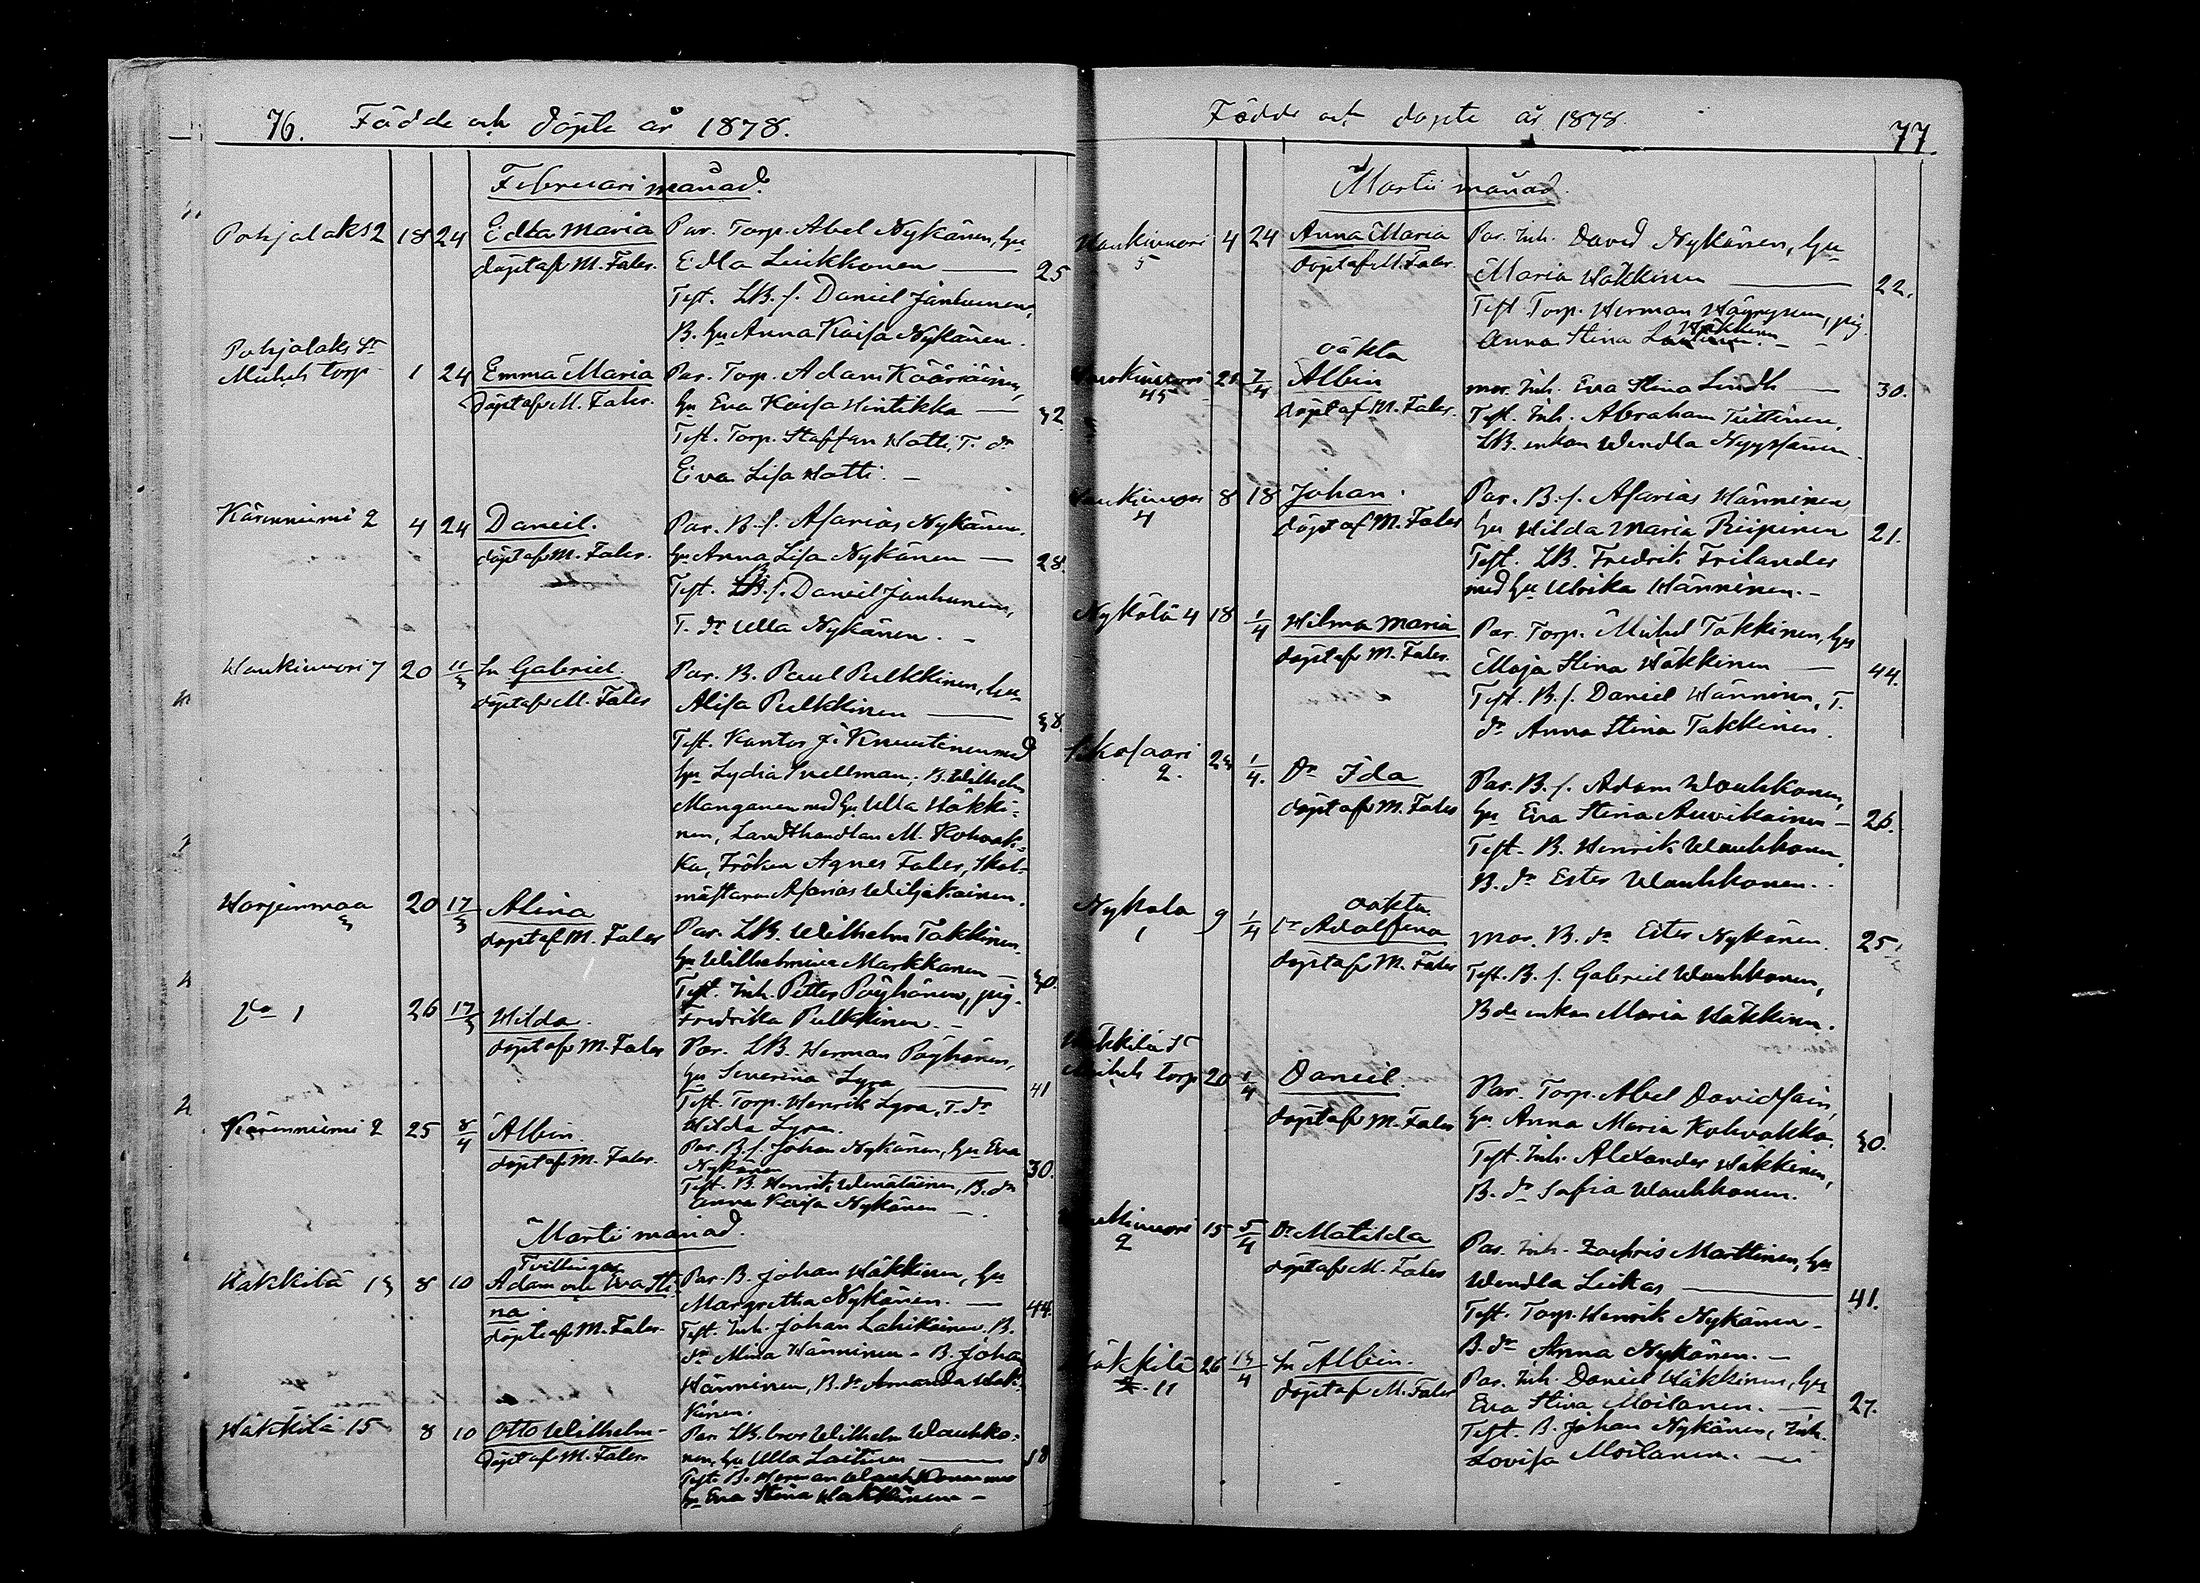 76. Födde och döpte år 1878.
Februari månad.
Pohjalaks 2 18 24 Edla Maria Par. Torp. Abel Nykänen, hu
döpt af M. Faler. Edla Leikkonen — 25
Test. LB. s. Daniel Janhunen,
B. hu Anna Kaisa Nykänen.
Pohjalaks St
Michels torp 1 24 Emma Maria Par. Torp. Adam Kääriäinen,
döpt af M. Faler. hu Eva Kaisa Hintikka — 32
Test. Torp. Staffan Hatti, T. dr
Eva Lisa Hatti. —
Kärenniemi 2 4 24 Daniel. Par. B. s. Asarias Nykänen.
döpt af M. Faler. hu Anna Lisa Nykänen — 28.
Test. LB. s. Daniel Janhunen,
T. dr Ulla Nykänen. —
Haukivuori 7 20 11/3 Sn Gabriel Par. B. Paul Pulkkinen, hu
döpt af M. Faler Alisa Pulkkinen — 38.
Test. Kantor J. Knuutinen med
hu Lydia Snellman; B. Wilhelm
Manganen med hu Ulla Häkki-
nen, Landthandlan M. Kohvak-
ka, Fröken Agnes Faler, Skol-
mästaren Asarias Wiljakainen.
Harjunmaa 3 20 17/3 Alina Par. LB. Wilhelm Takkinen
döpt af M. Faler hu Wilhelmina Markkanen — 30.
Test. Inh. Petter Pöyhönen, pig.
Fredrika Pulkkinen. —
Do 1 26 17/3 Hilda. Par. LB. Herman Pöyhönen,
döpt af M. Faler hu Severina Lyra — 41
Test. Torp. Henrik Lyra, T. dr
Hilda Lyra.
Kärenniemi 2 25 8/4 Albin. Par. B. s. Johan Nykänen, hu Eva
döpt af M. Faler. Nykänen — 30.
Test. B. Henrik Wenäläinen, B. dr
Anna Kaisa Nykänen —.
Martii månad.
Tvillingar
Häkkilä 13 8 10 Adam och Eva Sti- Par. B. Johan Häkkinen, hu
na. Margretha Nykänen. — 44.
döpte af M. Faler. Test. Inh. Johan Lahikainen, B.
dr Mina Hänninen - B. Johan
Hänninen, B. dr Amanda Häk-
kinen.
Häkkilä 15 8 10 Otto Wilhelm - Par. LB. bror Wilhelm Wauhko-
döpt af M. Faler nen, hu Ulla Laitinen — 18
Test. B. Herman Wauhkonen med
hu Eva Stina Häkkinen —
Födde och döpte år 1878. 77.
Martii månad.
Haukivuori 5 4 24 Anna Maria Par. Inh. David Nykänen, hu
döpt af M. Faler. Maria Häkkinen — 22.
Test Torp. Herman Häyrynen, pig.
Anna Stina Häkkinen —
oäkta
Haukivuori 45 21 7/4 Albin mor. Inh. Eva Stina Lindh — 30.
döpt af M. Faler. Test. Inh. Abraham Tiittinen,
LB. enkan Wendla Nyyssönen
Haukivuori 4 8 18 Johan. Par. B. s. Asarias Hänninen
döpt af M. Faler hu Hilda Maria Piipinen 21.
Test. LB. Fredrik Frilander
med hu Ulrika Hänninen. —
Nykälä 4 18 1/4 Hilma Maria Par. Torp. Michel Takkinen, hu
döpt af M. Faler. Maja Stina Häkkinen — 44.
Test. B. s. Daniel Hänninen, T.
dr Anna Stina Takkinen.
Sikosaari 2. 23 1/4. Dr Ida Par. B. s. Adam Wauhkonen,
döpt af M. Faler hu Eva Stina Auvikainen — 26.
Test. B. Henrik Wauhkonen,
B. dr Ester Wauhkonen..
oäkta.
Nykälä 1 9 1/4 Dr Adolfina Mor. B. dr Ester Nykänen. 25
döpt af M. Faler Test. B. s. Gabriel Wauhkonen,
B de enkan Maria Häkkinen.
Häkkilä St
Michels torp 20 1/4 Daniel. Par. Torp. Abel Davidsain,
döpt af M. Faler hu Anna Maria Kohvakka 30.
Test. Inh. Alexander Häkkinen,
B. dr Sofia Wauhkonen.
Haukivuori 2 15 5/4 Dr Matilda Par. Inh. Zachris Marttinen, hu
döpt af M. Faler Wendla Leikas — 41.
Test. Torp. Henrik Nykänen —
B. dr Anna Nykänen. —
Häkkilä 11 26 13/4 Sn Albin. Par. Inh. Daniel Häkkinen, hu
döpt af M. Faler Eva Stina Moilanen. — 27.
Test. B. Johan Nykänen, Inh.
Lovisa Moilanen. —